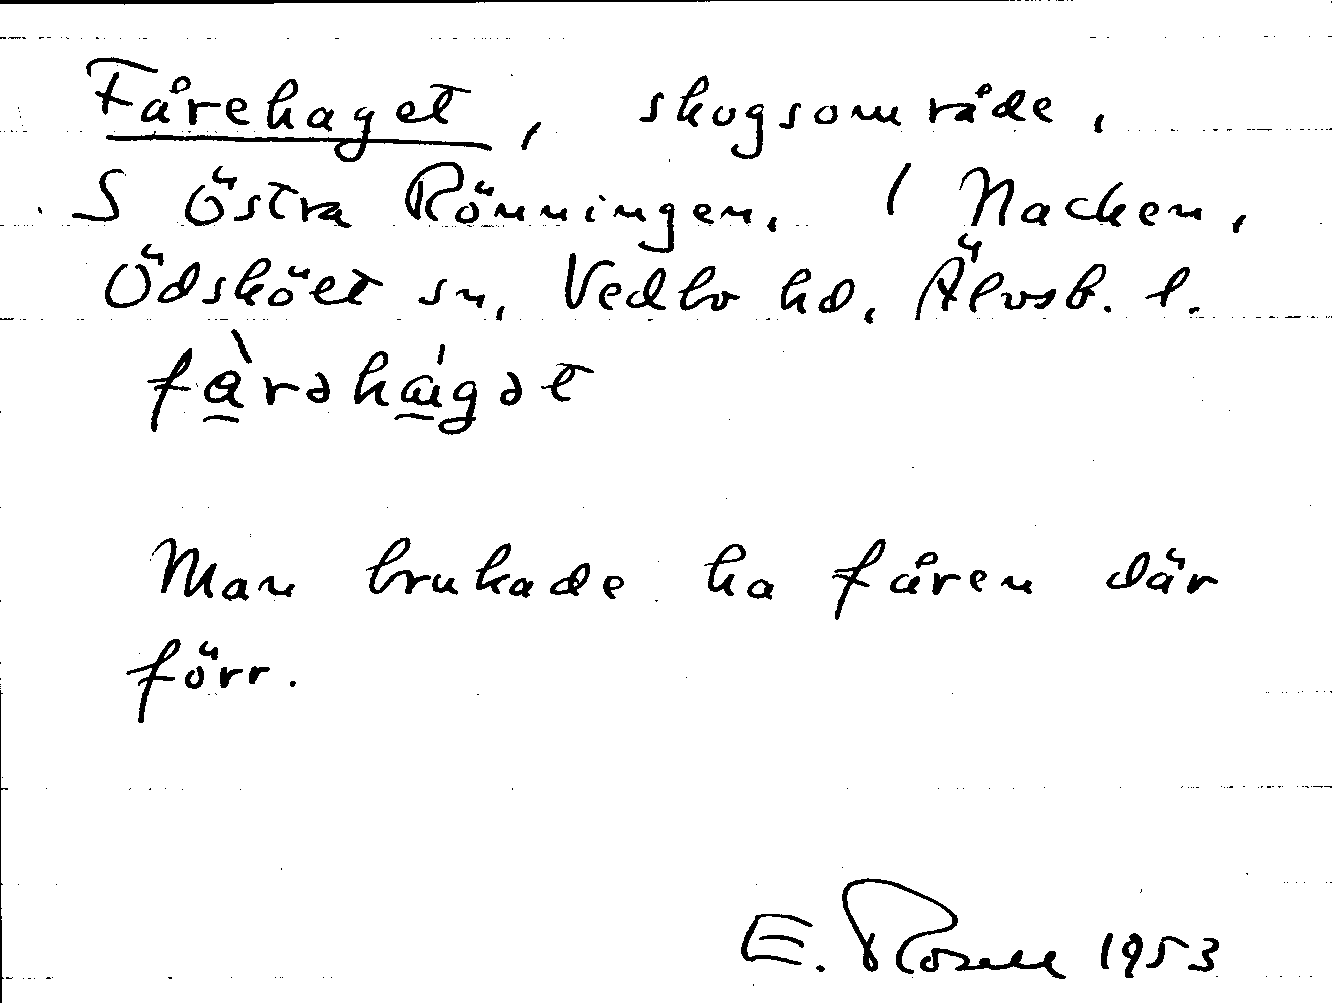 Fårehaget, skogsområde,
S Östra Rönningen, 1 Nacken,
Ödsköt sn, Vedbo hd, Älvsb. l.
fàrəhágət
Man brukade ha fåren där
förr.
E. Rosell 1953